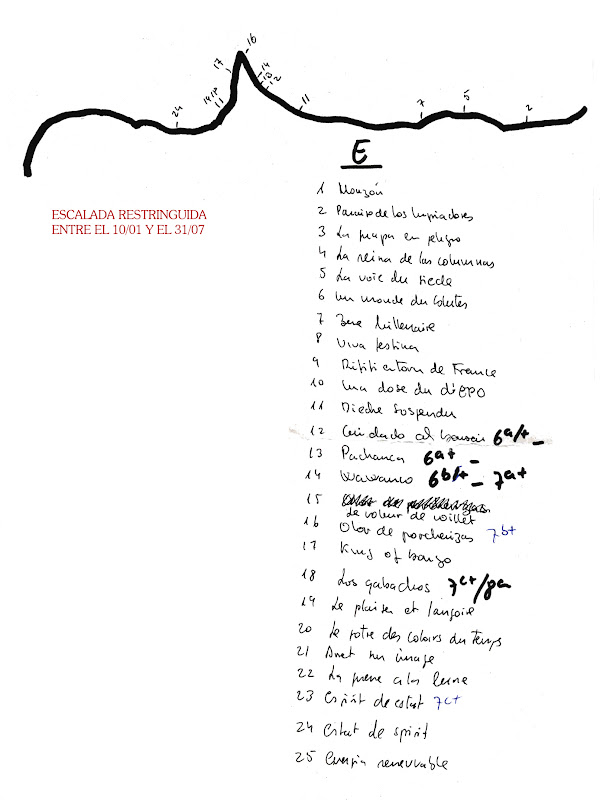 16
17
14
13
12
24
11
7
5
2
E
ESCALADA RESTRINGUIDA
ENTRE EL 10/01 Y EL 31/07
1 Monzón
2 de los limpiadores
3 La en peligro
4 La reina de las columnas
5 La voie du siecle
6 un monde du
7 3eme Millenaire
8 Viva festina
9 de France
10 Una dose du d'EPO
11 Sospendu
12 Cuidado al bonsai 6a/+ -
13 Pachanca 6a+ -
14 Wawanco 6b/+ - 7a+
15
Le voleur de
16 Olor de porcherizas 7b+
17 King of bongo
18 Los gabachos 7c+/8a
19 Le plaisir et l'angoise
20 Le des coloirs du Temps
21 Aret sur image
22 La a la
23 Espirit de estat 7c+
24 Estat de spirit
25 Energia renouvable